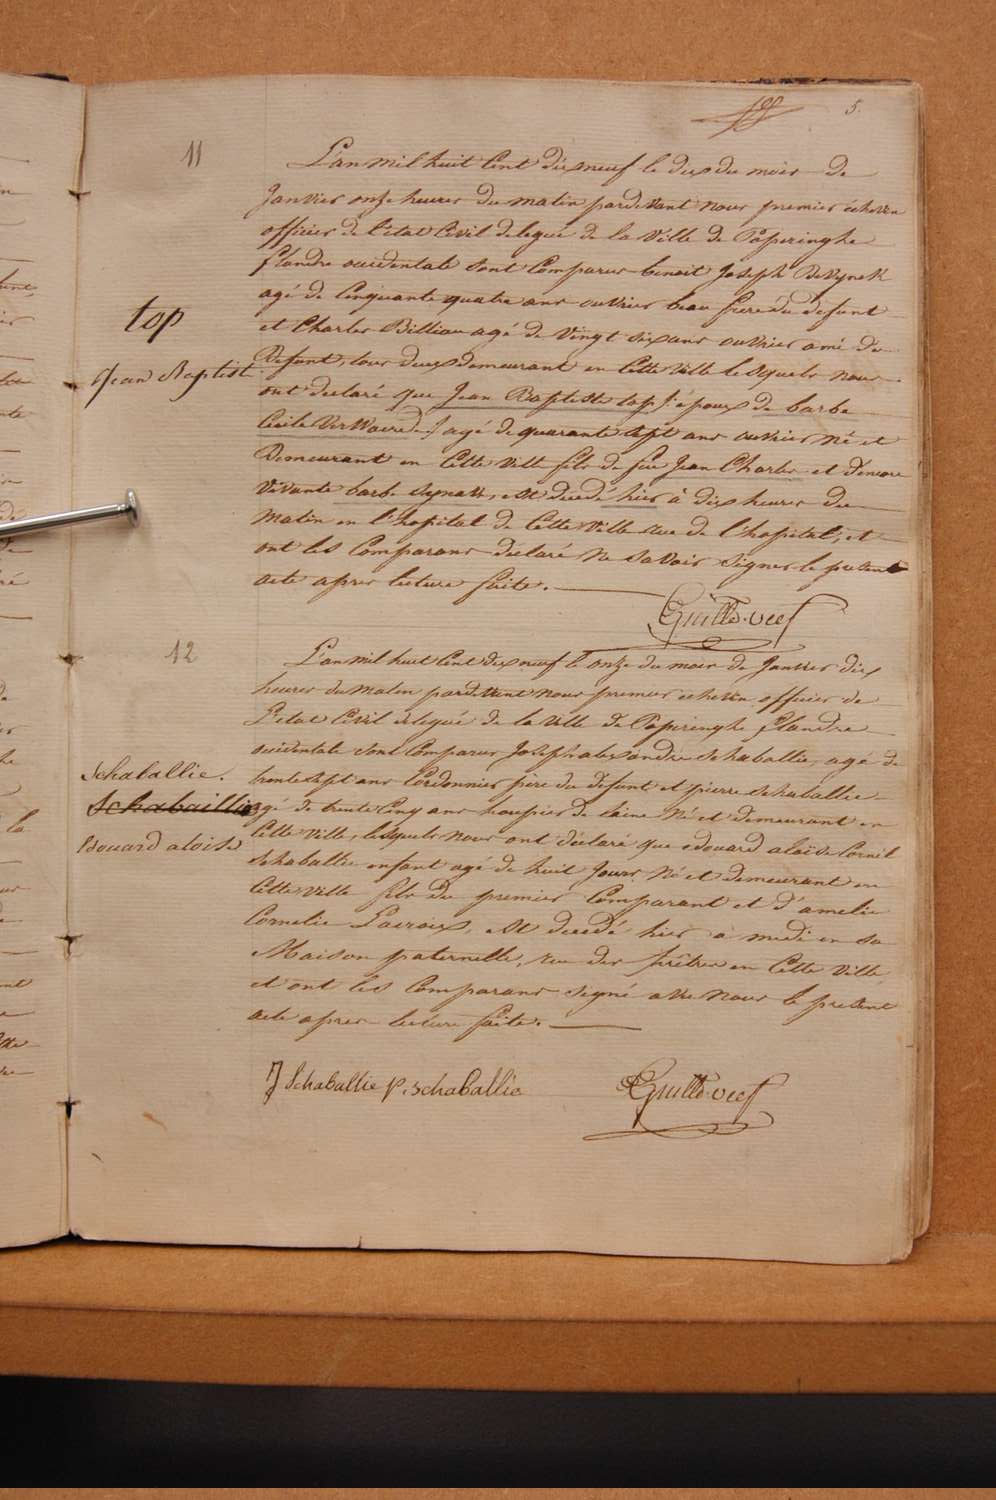 5.
11
L'an mil huit Cent dix neuf le dix du mois de
Janvier onze heures du matin pardevant nous premier echevin
officier de l'état Civil delegué de la Ville de Poperinghe
flandre occidentale sont Comparus benoit Joseph DeVynck
agé de Cinquante quatre ans ouvrier beau frere du defunt
et Charles Billiau agé de Vingt six ans ouvrier ami du
top
Jean Baptiste
Defunt, tous deux demeurant en Cette Ville lesquels nous
ont declaré que Jean Baptiste top /: époux de barbe
Cecile VerWaerde :/ agé de quarante sept ans ouvrier né et
Demeurant en Cette Ville fils de feu Jean Charles et d'encore
Vivante barbe, est decedé hier à dix heures du
Matin en l'hopital de Cette Ville rue de l'hopital, et
ont les Comparans déclaré Ne savoir signer le present
acte apres lecture faite.
12
L'an mil huit Cent dix neuf le onze du mois de Janvier dix
heures du Matin pardevant nous premier echevin officier de
L'etat Civil delegué de la Ville de Poperinghe flandre
occidentale sont Comparus Joseph alexandre schaballie, agé de
Schaballie.
trente sept ans Cordonnier père du defunt et pierre schaballie
Schabaillie
agé de trente Cinq ans houpier de laine Né et demeurant en
Edouard aloise
Cette Ville, lesquels nous ont déclaré que edouard aloïse Cornil
schaballie enfant agé de huit Jours Né et demeurant en
Cette ville fils du premier Comparant et d'amelie
Cornelie Lacroix, est decedé hier à midi en sa
Maison paternelle, rue des prêtres en Cette Ville,
et ont les Comparans signé avec nous le present
acte apres lecture faite.
J Schaballie P. schaballie